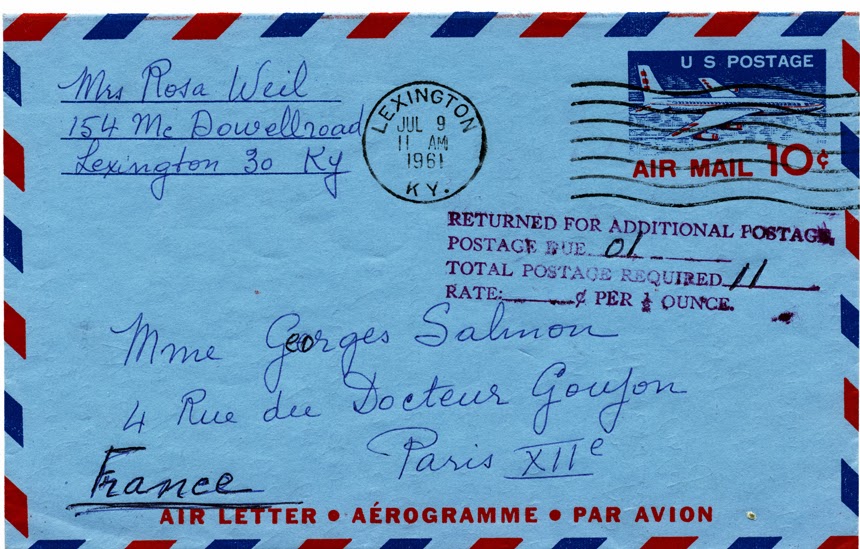 Mrs Rosa Weil
154 Mc Dowellroad
Lexington 30 Ky
LEXINGTON
JUL 9
11 AM
1961
KY.
U S POSTAGE
AIR MAIL 10¢
RETURNED FOR ADDITIONAL POSTAGE.
POSTAGE DUE 01
TOTAL POSTAGE REQUIRED 11
RATE: ¢ PER ½ OUNCE.
Mme Georges Salmon
4 Rue du Docteur Goujon
Paris XIIe
France
AIR LETTER • AÉROGRAMME • PAR AVION